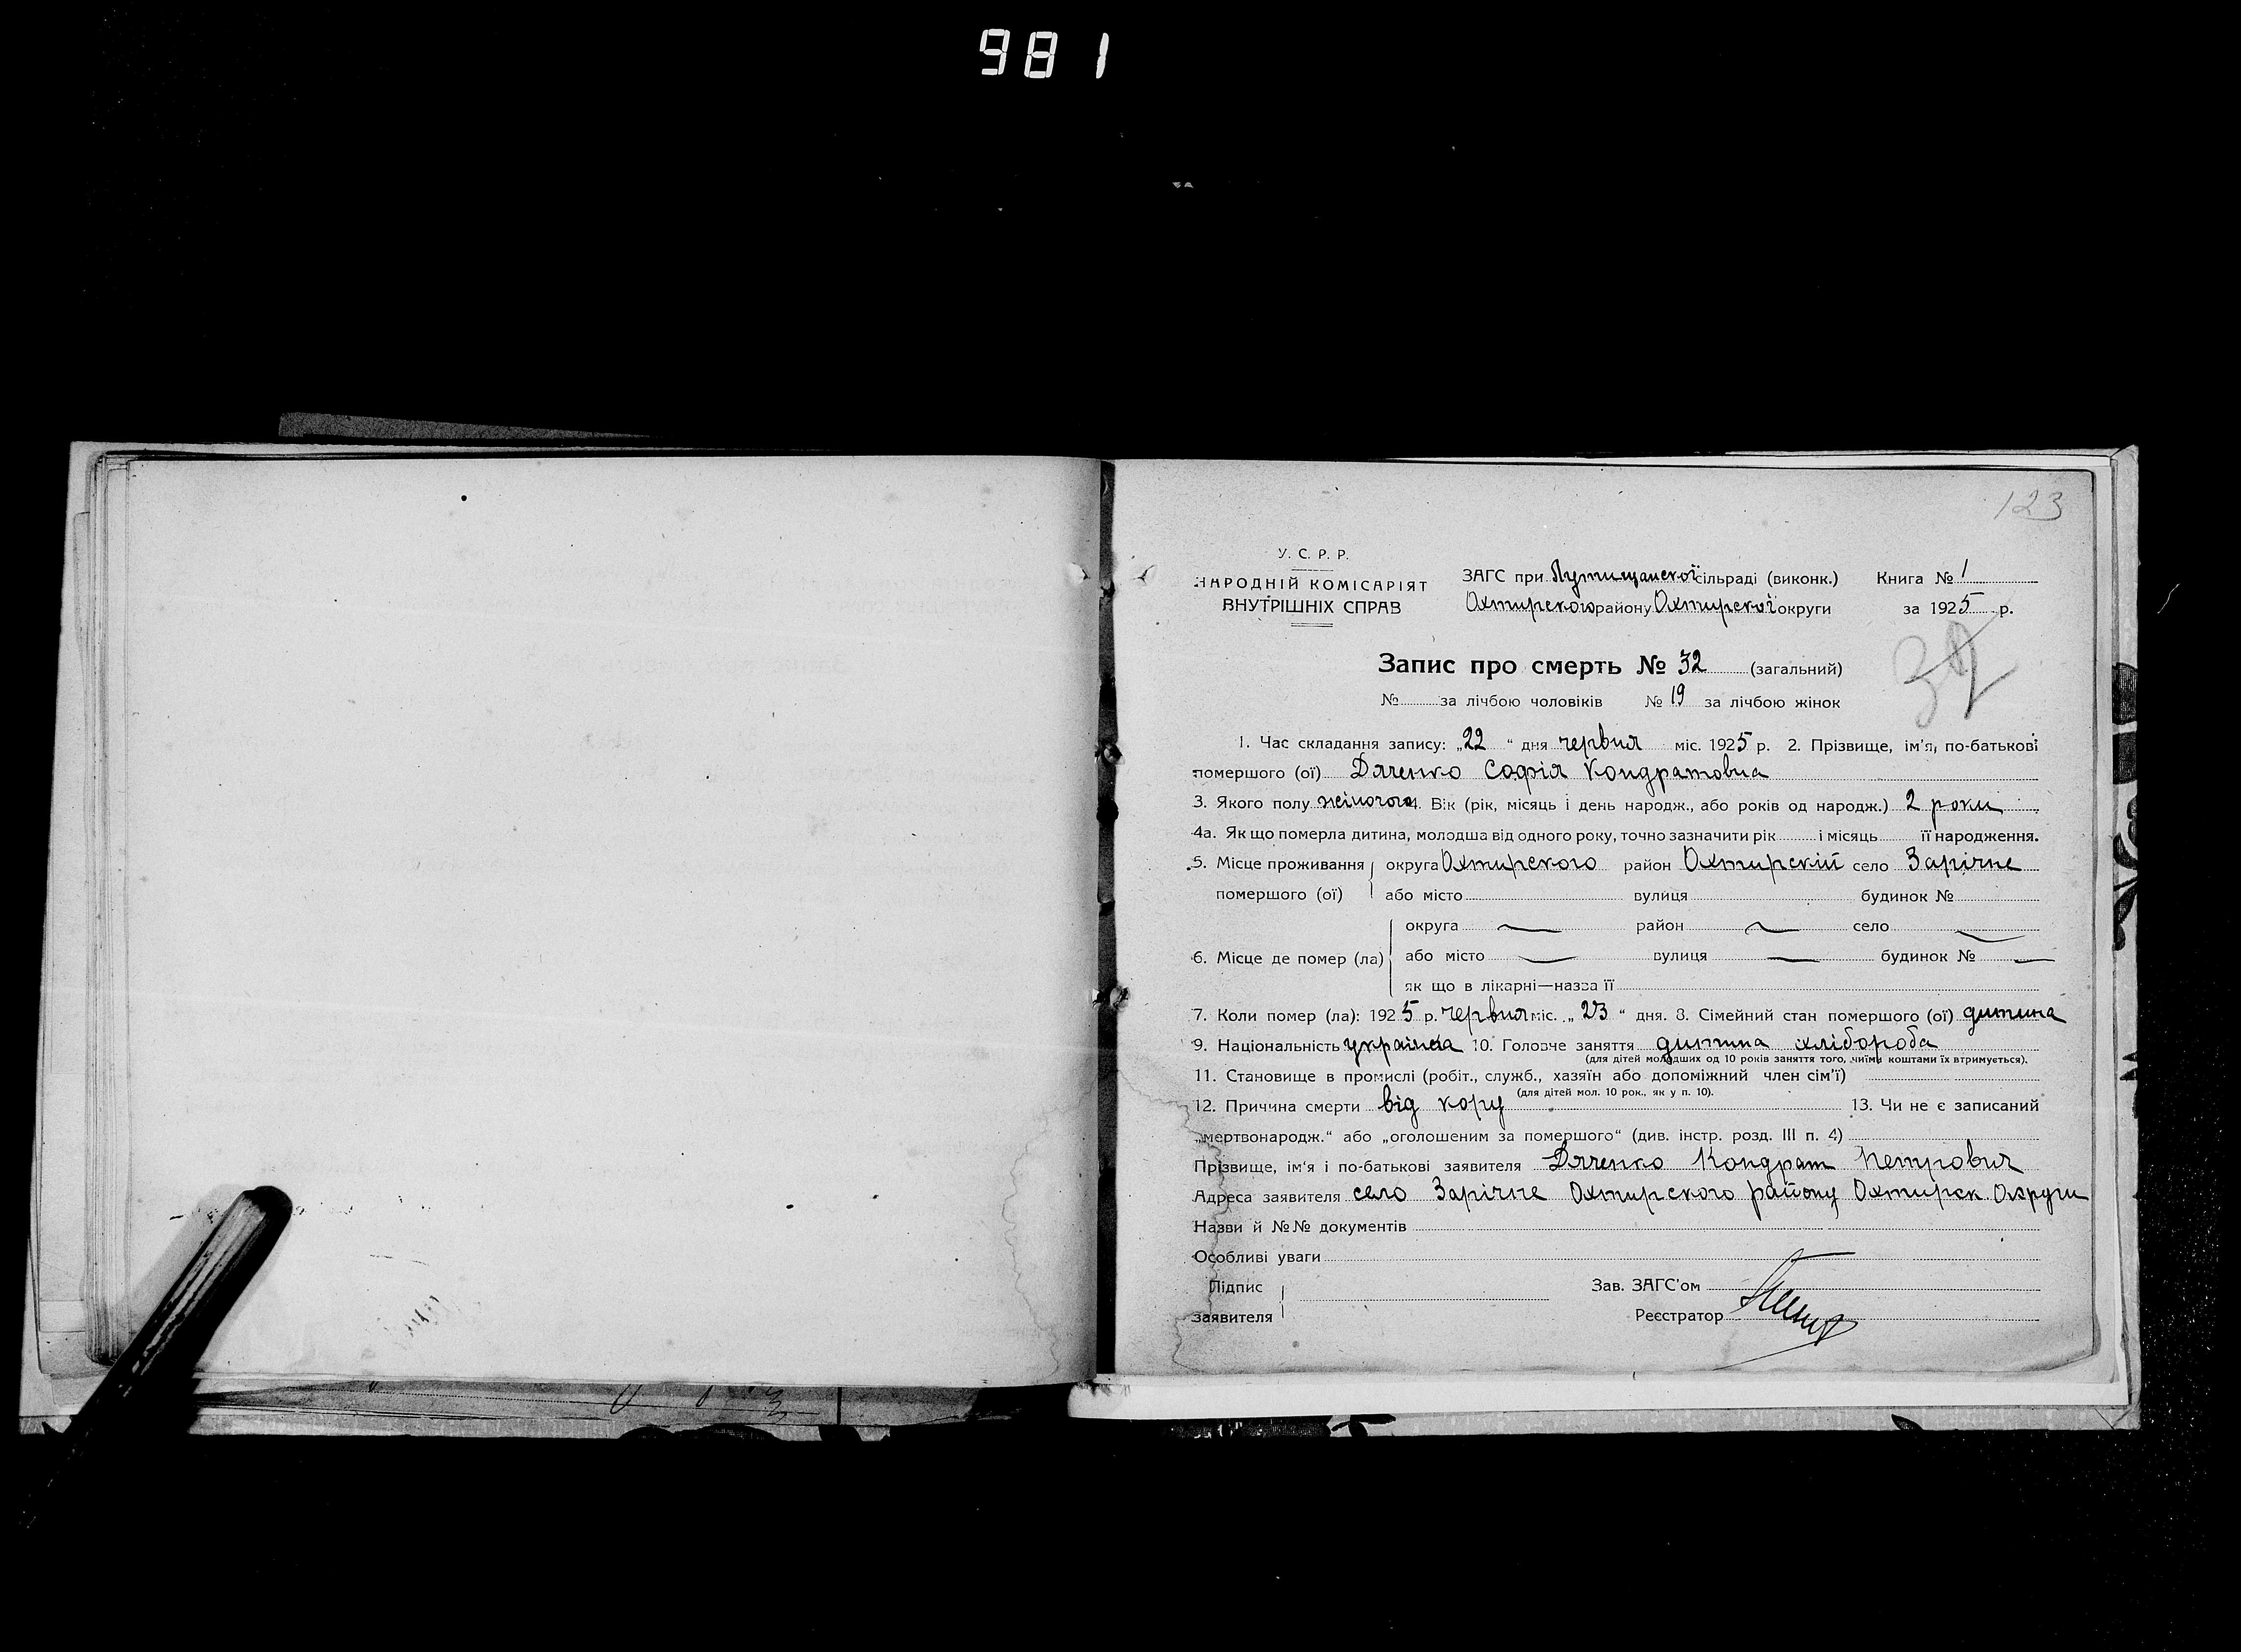 981
123
У. С. Р. Р.
НАРОДНІЙ КОМІСАРІЯТ
ВНУТРІШНІХ СПРАВ
ЗАГС при Лутищанской сільраді (виконк.) Книга № 1
Охтирского району Охтирскої округи за 1925 р.
Запис про смерть № 32 (загальний)
32
№ за лічбою чоловіків № 19 за лічбою жінок
1. Час складання запису: „22 “ дня червня міс. 1925 р. 2. Прізвище, ім'я, по-батькові
помершого (ої) Дяченко Софія Кондратовна
3. Якого полу жіночого 4. Вік (рік, місяць і день народж., або років од народж.) 2 роки
4а. Як що померла дитина, молодша від одного року, точно зазначити рік і місяць її народження.
5. Місце проживання округа Охтирского район Охтирскій село Зарічне
помершого (ої) або місто вулиця будинок №
округа — район — село —
6. Місце де помер (ла) або місто — вулиця — будинок № —
як що в лікарні—назва її
7. Коли помер (ла): 1925 р. червня міс. „ 23 “ дня. 8. Сімейний стан помершого (ої) дитина
9. Національність українка 10. Головне заняття дитина хлібороба
(для дітей молодших од 10 років заняття того, чиїми коштами їх втримується).
11. Становище в промислі (робіт., служб., хазяїн або допоміжний член сім'ї)
(для дітей мол. 10 рок., як у п. 10).
12. Причина смерти від кору 13. Чи не є записаний
„мертвонародж.“ або „оголошеним за помершого“ (див. інстр. розд. III п. 4)
Прізвище, ім'я і по-батькові заявителя Дяченко Кондрат Петрович
Адреса заявителя село Зарічне Охтирского району Охтирск Округи
Назви й №№ документів
Особливі уваги
Підпис
заявителя
Зав. ЗАГС'ом
Реєстратор